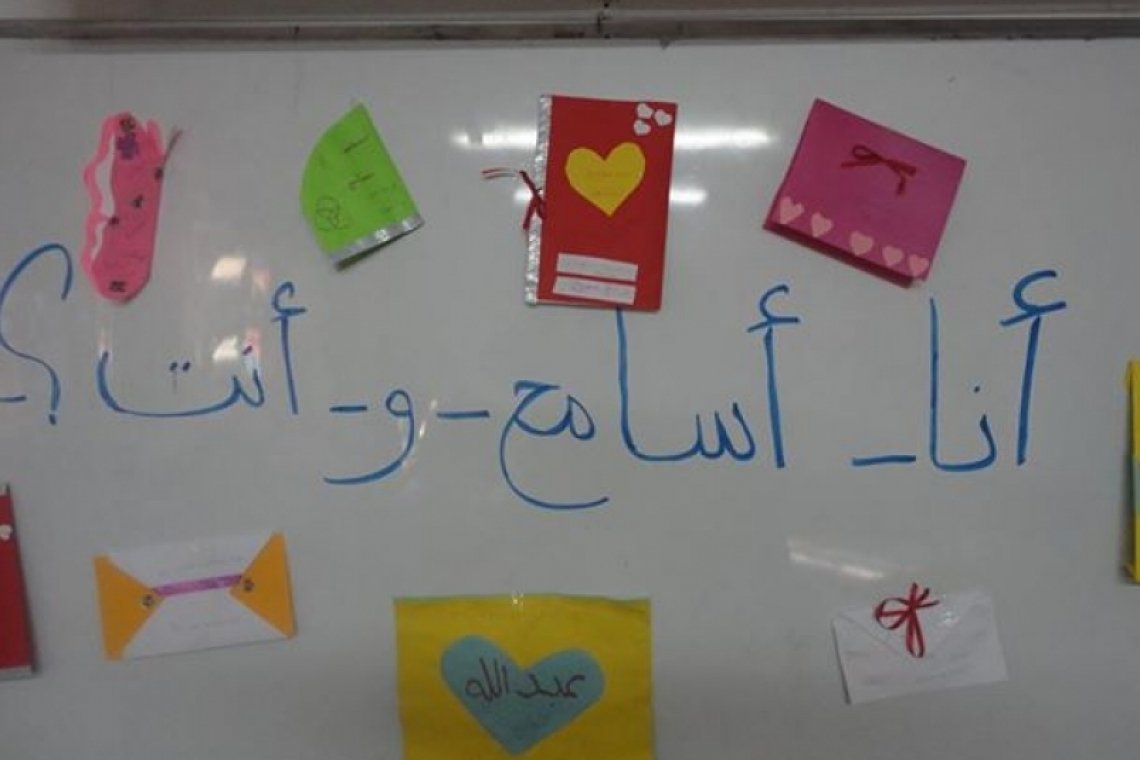 أنا - أسامح - و - أنت؟ -
عبدالله